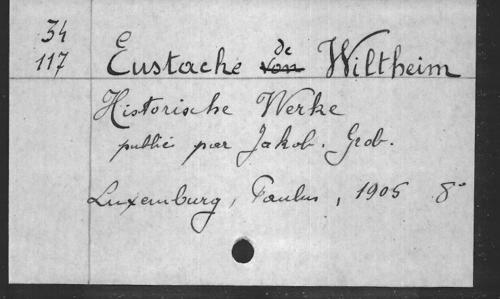 34
117
Eustache de von Wiltheim
Historische Werke
publié par Jakob. Grob.
Luxemburg, Paulus, 1905 8°